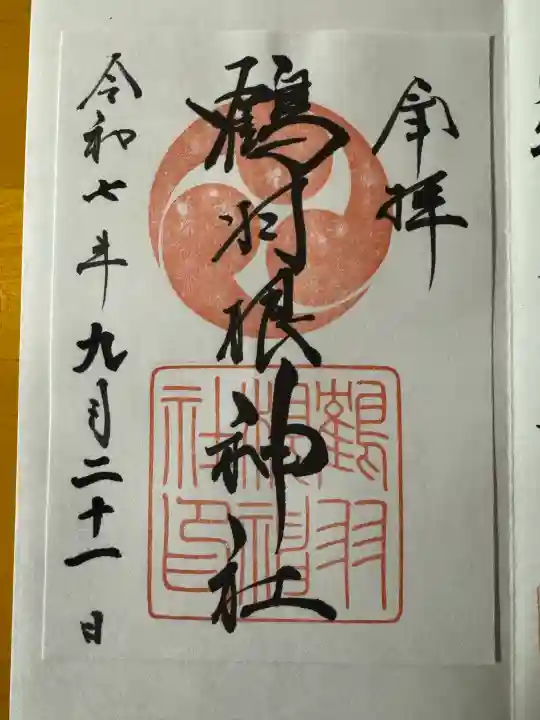 奉拝
鶴羽根神社
鶴羽
根神
社印
令和七年九月二十一日